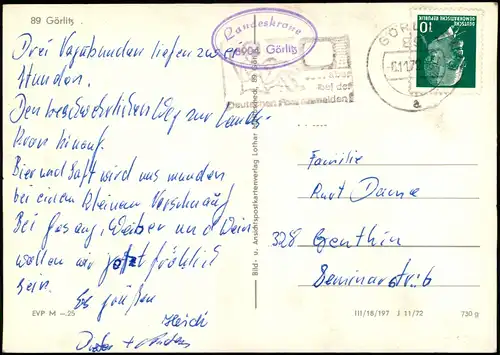 89 Görlitz
Landeskrone
8904 Görlitz
bei der
Deutschen Post anmelden!
GÖRL
a
10
DEUTSCHE DEMOKRATISCHE REPUBLIK
Drei Vagabunden liefen zwei
Stunden.
Den beschwerlichen Weg zur Landes-
kron hinauf.
Bier und Saft wird uns munden
bei einem kleinen Verschnauf
Bei Gesang, Weiber und Wein
wollen wir jetzt fröhlich
sein.
Es grüßen
Heidi
Dieter +
Familie
Kurt
328 Genthin
Seminarstr. 6
Bild- u. Ansichtspostkartenverlag Lothar
89 Görlitz
EVP M –.25
III/18/197 J 11/72
730 g